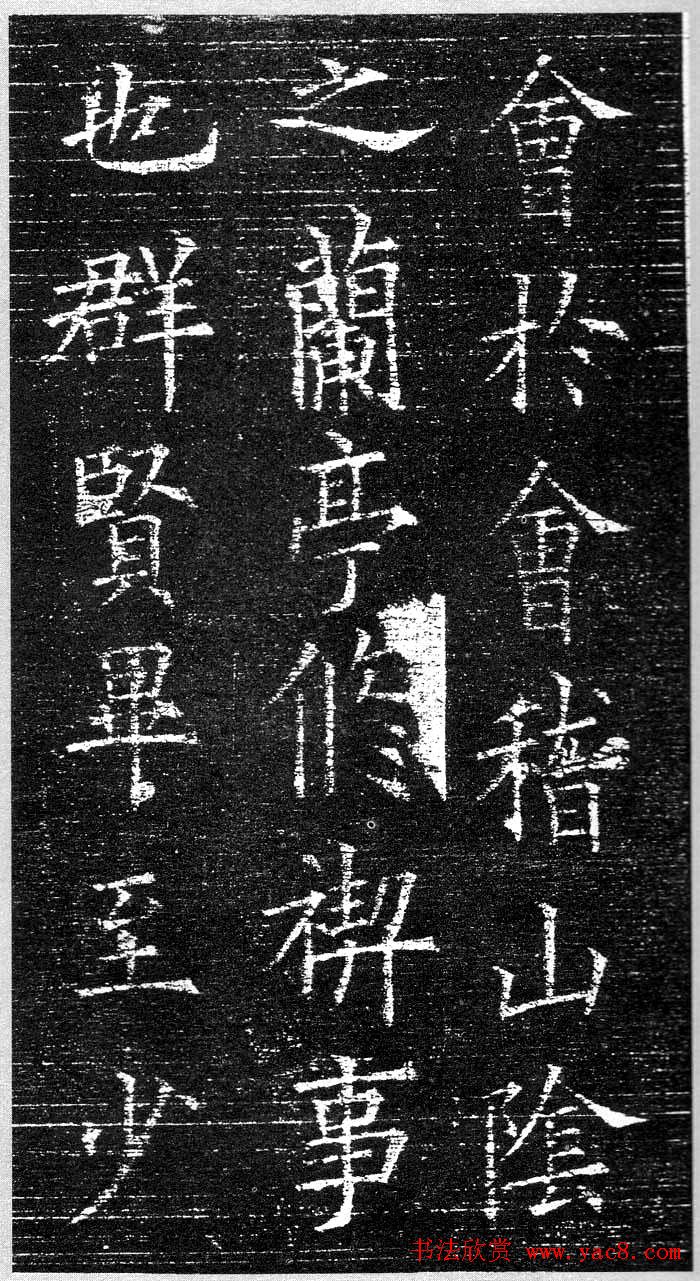 會於會稽山陰
之蘭亭脩禊事
也群賢畢至少
书法欣赏 www.yac8.com